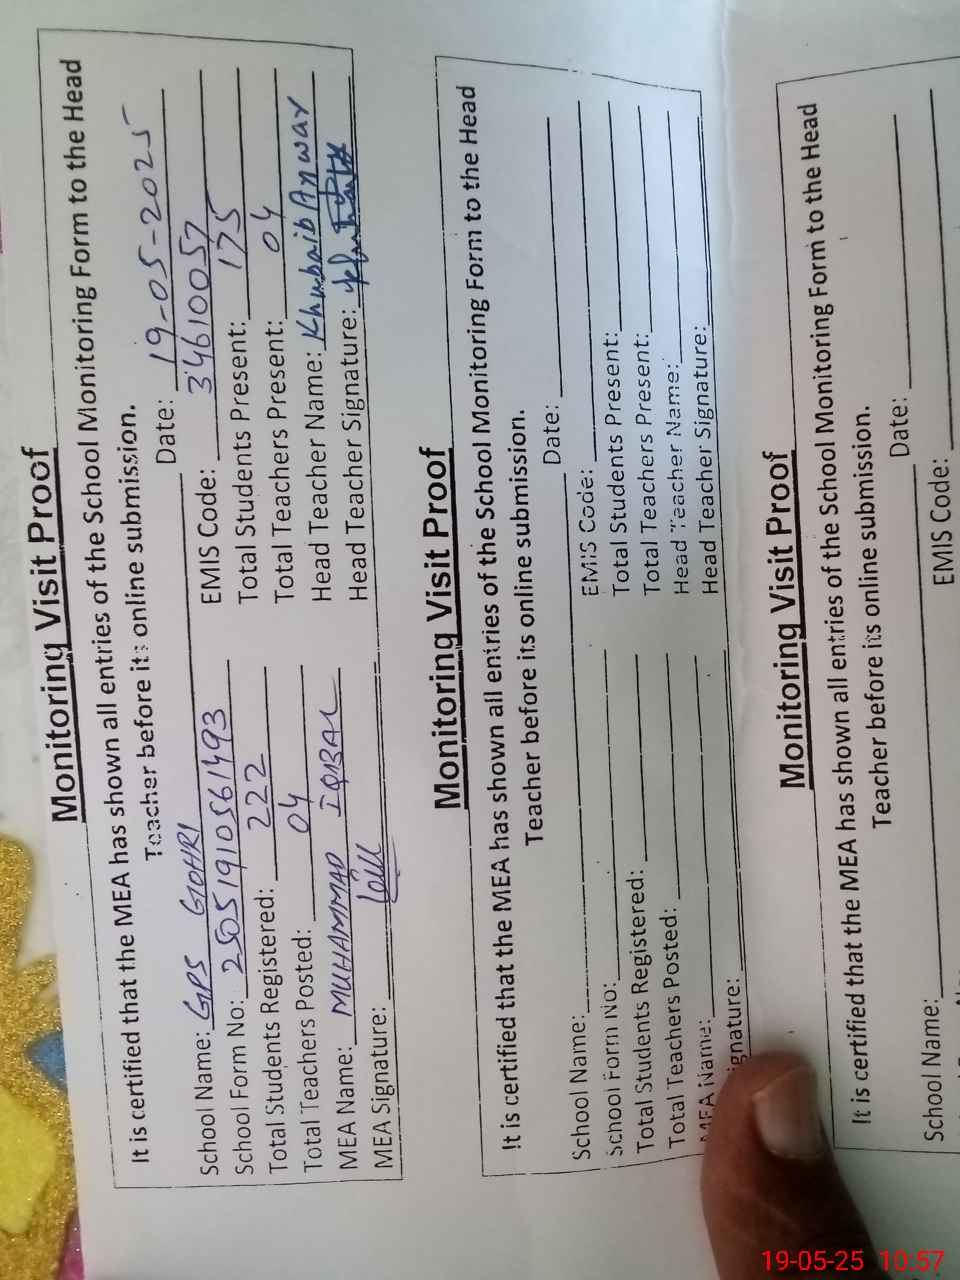 Monitoring Visit Proof
It is certified that the MEA has shown all entries of the School Monitoring Form to the Head
Teacher before its online submission.
School Name: GPS GOHRI Date: 19-05-2025
School Form No: 25051910561493 EMIS Code: 34610057
Total Students Registered: 222 Total Students Present: 175
Total Teachers Posted: 04 Total Teachers Present: 04
MEA Name: MUHAMMAD IQBAL Head Teacher Name: Khubaib Anwar
MEA Signature: Head Teacher Signature:
Monitoring Visit Proof
It is certified that the MEA has shown all entries of the School Monitoring Form to the Head
Teacher before its online submission.
School Name: Date:
School Form No: EMIS Code:
Total Students Registered: Total Students Present:
Total Teachers Posted: Total Teachers Present:
MEA Name: Head Teacher Name:
ignature: Head Teacher Signature:
Monitoring Visit Proof
It is certified that the MEA has shown all entries of the School Monitoring Form to the Head
Teacher before its online submission.
School Name: Date:
EMIS Code:
19-05-25 10:57